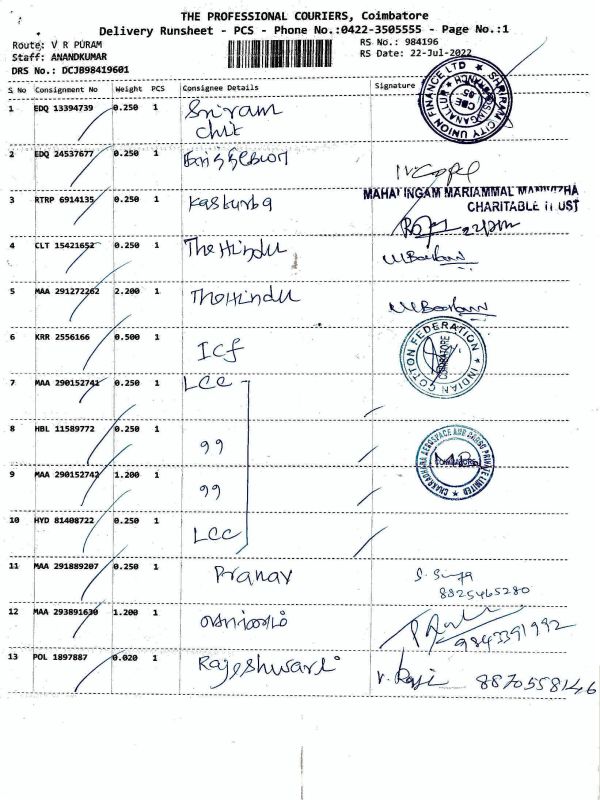 THE PROFESSIONAL COURIERS, Coimbatore
Delivery Runsheet - PCS - Phone No.:0422-3505555 - Page No.:1
Route: V R PURAM
RS No.: 984196
Staff: ANANDKUMAR
RS Date: 22-Jul-2022
DRS No.: DCJB98419601
S No Consignment No Weight PCS Consignee Details Signature
1 EDQ 13394739 0.250 1 Sriram
Chit
SHRIRAM CITY UNION FINANCE LTD
2 EDQ 24537677 0.250 1
3 RTRP 6914135 0.250 1 Kasturba
MAHALINGAM MARIAMMAL
CHARITABLE TRUST
4 CLT 15421652 0.250 1 The Hindu
5 MAA 291272262 2.200 1 The Hindu
6 KRR 2556166 0.500 1 Icf
INDIAN COTTON FEDERATION
COIMBATORE
7 MAA 290152741 0.250 1 LCC
8 HBL 11589772 0.250 1 99
CHAKRADHARA AEROSPACE AND CARGO PRIVATE LIMITED
9 MAA 290152742 1.200 1 99
10 HYD 81408722 0.250 1 LCC
11 MAA 291889207 0.250 1 Pranav
8825465280
12 MAA 293891630 1.200 1
9843391992
13 POL 1897887 0.020 1 Rajeshwari
V. Raji 8870558146